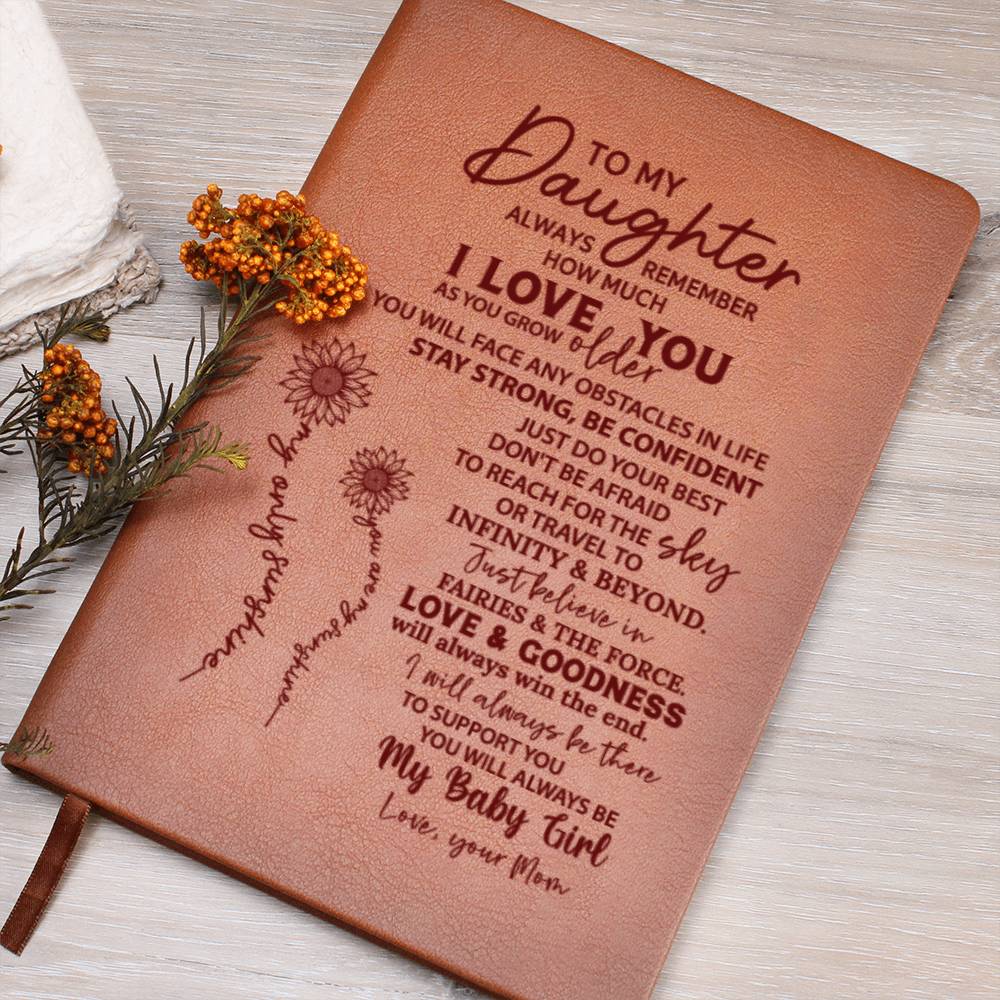 TO MY
Daughter
ALWAYS REMEMBER
HOW MUCH
I LOVE YOU
AS YOU GROW older
YOU WILL FACE ANY OBSTACLES IN LIFE
STAY STRONG, BE CONFIDENT
JUST DO YOUR BEST
DON'T BE AFRAID
TO REACH FOR THE sky
OR TRAVEL TO
INFINITY & BEYOND.
Just believe in
FAIRIES & THE FORCE.
LOVE & GOODNESS
will always win the end.
I will always be there
TO SUPPORT YOU
YOU WILL ALWAYS BE
My Baby Girl
Love, your Mom
my only sunshine
you are my sunshine